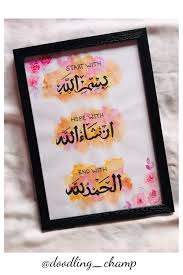 START WITH
بسم الله
HOPE WITH
إن شاء الله
END WITH
الحمد لله
@doodling__champ